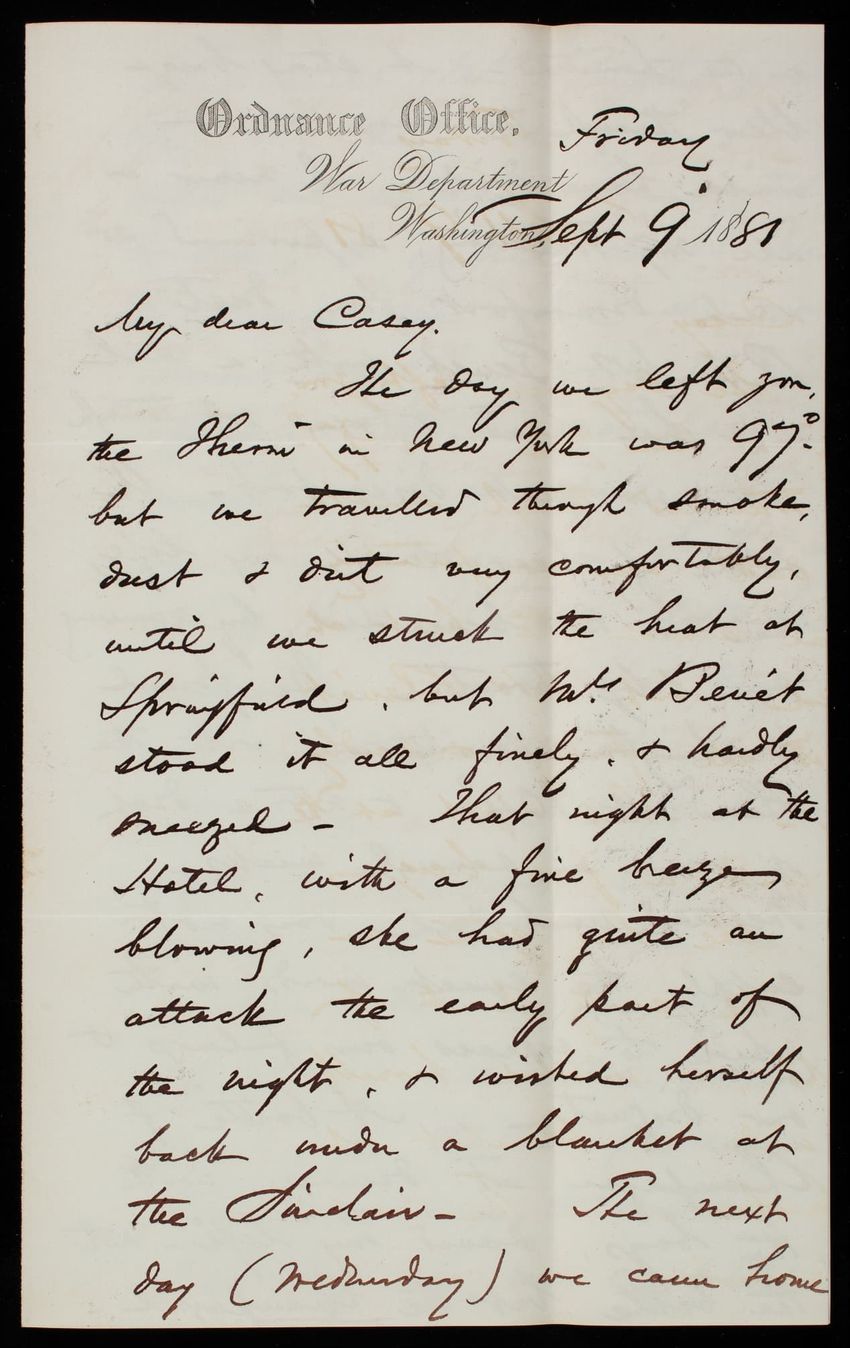 Ordnance Office.
Friday
War Department
Washington, Sept 9 1881
My dear Casey.
The day we left you,
the Therm in New York was 97°.
but we travelled through smoke,
dust & dirt very comfortably,
until we struck the heat at
Springfield. but Mrs Benét
stood it all finely. & hardly
sneezed - That night at the
Hotel, with a fine breeze
blowing, she had quite an
attack the early part of
the night, & wished herself
back under a blanket at
the Sinclair - The next
day (Wednesday) we came home